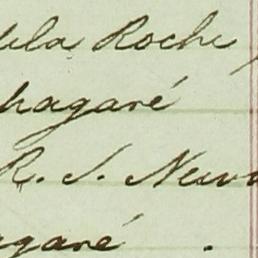 dela Roche,
hagaré
R. S. New
agaré .